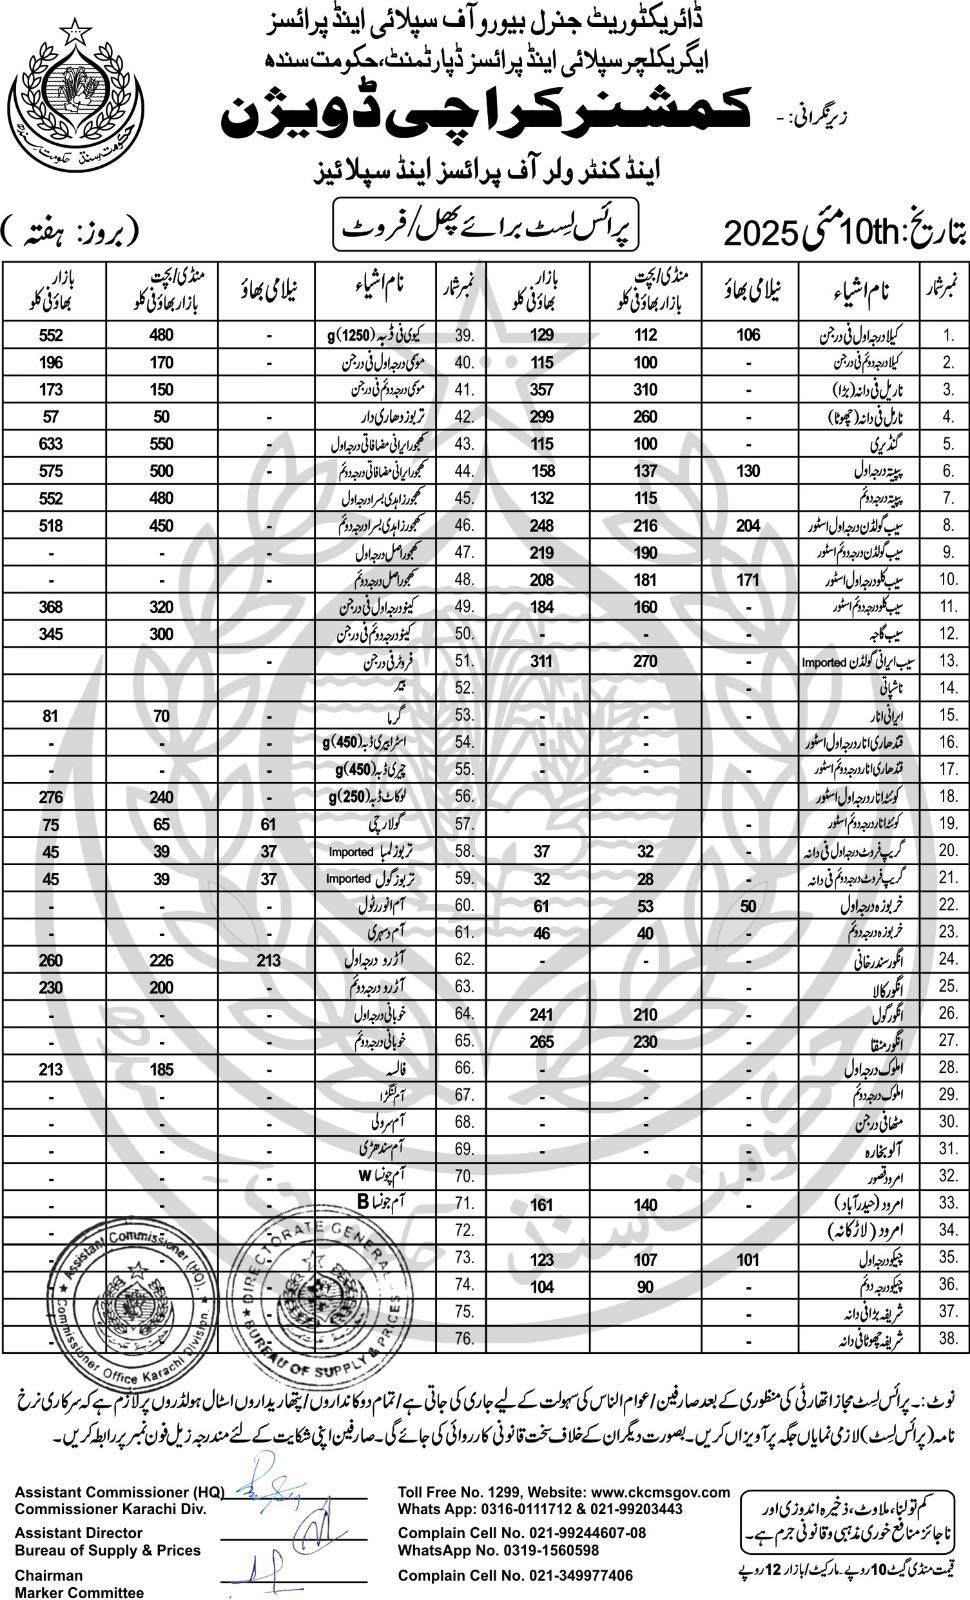 ڈائریکٹوریٹ جنرل بیورو آف سپلائی اینڈ پرائسز
ایگریکلچر سپلائی اینڈ پرائسز ڈپارٹمنٹ، حکومت سندھ
زیر نگرانی: - کمشنر کراچی ڈویژن
اینڈ کنٹرولر آف پرائسز اینڈ سپلائیز
بتاریخ: 10th مئی 2025 پرائس لِسٹ برائے پھل/فروٹ (بروز: ہفتہ)
نمبر شمار نام اشیاء نیلامی بھاؤ منڈی/بچت بازار بھاؤ فی کلو بازار بھاؤ فی کلو
1. کیلا درجہ اول فی درجن 106 112 129
2. کیلا درجہ دوئم فی درجن - 100 115
3. ناریل فی دانہ (بڑا) - 310 357
4. نارئل فی دانہ (چھوٹا) - 260 299
5. گنڈیری - 100 115
6. پپیتہ درجہ اول 130 137 158
7. پپیتہ درجہ دوئم - 115 132
8. سیب گولڈن درجہ اول اسٹور 204 216 248
9. سیب گولڈن درجہ دوئم اسٹور - 190 219
10. سیب کلو درجہ اول اسٹور 171 181 208
11. سیب کلو درجہ دوئم اسٹور - 160 184
12. سیب گاجہ - - -
13. سیب ایرانی گولڈن Imported - 270 311
14. ناشپاتی -
15. ایرانی انار - - -
16. قندھاری انار درجہ اول اسٹور - - -
17. قندھاری انار درجہ دوئم اسٹور - - -
18. کوئٹہ انار درجہ اول اسٹور
19. کوئٹہ انار درجہ دوئم اسٹور -
20. گریپ فروٹ درجہ اول فی دانہ - 32 37
21. گریپ فروٹ درجہ دوئم فی دانہ - 28 32
22. خربوزہ درجہ اول 50 53 61
23. خربوزہ درجہ دوئم - 40 46
24. انگور سندر خانی - - -
25. انگور کالا
26. انگور گول - 210 241
27. انگور منقا - 230 265
28. املوک درجہ اول - - -
29. املوک درجہ دوئم -
30. مٹھا فی درجن - - -
31. آلو بخارہ - - -
32. امرود قصور -
33. امرود (حیدرآباد) - 140 161
34. امرود (لاڑکانہ)
35. چیکو درجہ اول 101 107 123
36. چیکو درجہ دوئم - 90 104
37. شریفہ بڑا فی دانہ -
38. شریفہ چھوٹا فی دانہ -
نمبر شمار نام اشیاء نیلامی بھاؤ منڈی/بچت بازار بھاؤ فی کلو بازار بھاؤ فی کلو
39. کیوی فی ڈبہ (1250)g - 480 552
40. موسمی درجہ اول فی درجن - 170 196
41. موسمی درجہ دوئم فی درجن 150 173
42. تربوز دھاری دار 50 57
43. کھجور ایرانی مضافاتی درجہ اول - 550 633
44. کھجور ایرانی مضافاتی درجہ دوئم - 500 575
45. کھجور زاہدی بسرا درجہ اول 480 552
46. کھجور زاہدی بسرا درجہ دوئم - 450 518
47. کھجور اصل درجہ اول - - -
48. کھجور اصل درجہ دوئم - - -
49. کینو درجہ اول فی درجن - 320 368
50. کینو درجہ دوئم فی درجن 300 345
51. فروٹر فی درجن -
52. بیر
53. گرما - 70 81
54. اسٹرابیری ڈبہ (450)g - - -
55. چیری ڈبہ (450)g - - -
56. لوکاٹ ڈبہ (250)g - 240 276
57. گولارچی 61 65 75
58. تربوز لمبا Imported 37 39 45
59. تربوز گول Imported 37 39 45
60. آم انور رٹول - - -
61. آم دسہری - - -
62. آڑو درجہ اول 213 226 260
63. آڑو درجہ دوئم 200 230
64. خوبانی درجہ اول - - -
65. خوبانی درجہ دوئم - - -
66. فالسہ - 185 213
67. آم لنگڑا - - -
68. آم سرولی - - -
69. آم سندھڑی - - -
70. آم چونسا W - - -
71. آم چونسا B - - -
72.
73.
74.
75.
76.
نوٹ:۔ پرائس لِسٹ مجاز اتھارٹی کی منظوری کے بعد صارفین/عوام الناس کی سہولت کے لیے جاری کی جاتی ہے/تمام دوکانداروں/پتھاریداروں اسٹال ہولڈروں پر لازم ہے کہ سرکاری نرخ
نامہ (پرائس لِسٹ) لازمی نمایاں جگہ پر آویزاں کریں۔ بصورت دیگر ان کے خلاف سخت قانونی کارروائی کی جائے گی۔ صارفین اپنی شکایت کے لئے مندرجہ زیل فون نمبر پر رابطہ کریں۔
Assistant Commissioner (HQ)
Commissioner Karachi Div.
Assistant Director
Bureau of Supply & Prices
Chairman
Marker Committee
Toll Free No. 1299, Website: www.ckcmsgov.com
Whats App: 0316-0111712 & 021-99203443
Complain Cell No. 021-99244607-08
WhatsApp No. 0319-1560598
Complain Cell No. 021-349977406
کم تولنا، ملاوٹ، ذخیرہ اندوزی اور
ناجائز منافع خوری مذہبی و قانونی جرم ہے۔
قیمت منڈی گیٹ 10 روپے۔ مارکیٹ/بازار 12 روپے
Assistant Commissioner (HQ).
Commissioner Office Karachi Division.
DIRECTORATE GENERAL
BUREAU OF SUPPLY & PRICES
حکومت سندھ